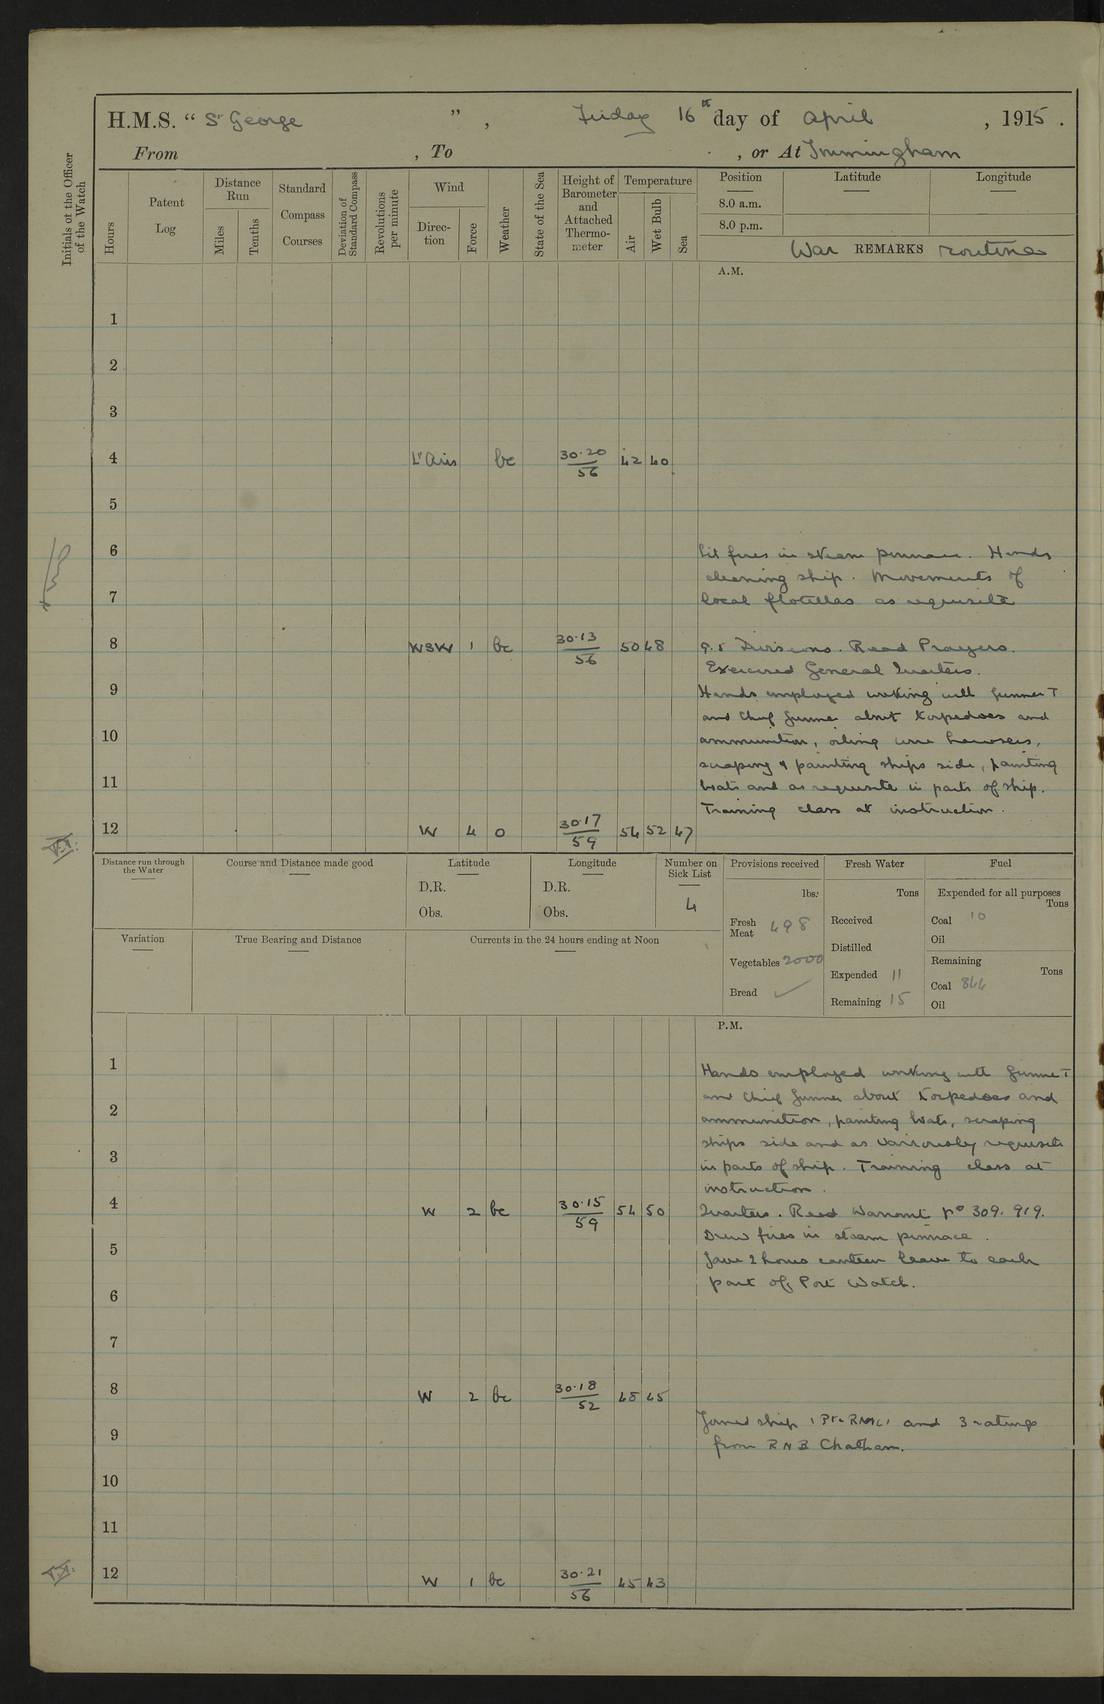 H.M.S. “ St George ” , Friday 16th day of April , 1915 .
From , To , or At Immingham
Initials of the Officer of the Watch
Hours
Patent Log
Distance Run
Miles
Tenths
Standard Compass Courses
Deviation of Standard Compass
Revolutions per minute
Wind
Direction
Force
Weather
State of the Sea
Height of Barometer and Attached Thermometer
Temperature
Air
Wet Bulb
Sea
Position Latitude Longitude
8.0 a.m.
8.0 p.m.
War REMARKS routine
A.M.
1
2
3
4 Lt Airs bc 30·20/56 42 40
5
6 Lit fires in steam pinnace. Hands
cleaning ship. Movements of
7 local flotillas as requisite
8 WSW 1 bc 30·13/56 50 48 9.5 Divisions. Read Prayers.
Exercised General Quarters.
9 Hands employed working with Gunner T
and Chief Gunner about torpedoes and
10 ammunition, oiling wire hawsers,
scraping & painting ships side, painting
11 boats and as requisite in parts of ship.
Training class at instruction.
12 W 4 o 30·17/59 54 52 47
Distance run through the Water
Course and Distance made good
Latitude
D.R.
Obs.
Longitude
D.R.
Obs.
Number on Sick List
4
Variation
True Bearing and Distance
Currents in the 24 hours ending at Noon
Provisions received
lbs.
Fresh Meat 498
Vegetables 2000
Bread ✓
Fresh Water
Tons
Received
Distilled
Expended 11
Remaining 15
Fuel
Expended for all purposes
Tons
Coal 10
Oil
Remaining
Tons
Coal 844
Oil
P.M.
1 Hands employed working with Gunner T
and Chief Gunner about torpedoes and
2 ammunition, painting boats, scraping
ships side and as variously requisite
3 in parts of ship. Training class at
instruction.
4 W 2 bc 30·15/59 54 50 Quarters. Read Warrant No 309. 919.
Drew fires in steam pinnace.
5 Gave 2 hours canteen leave to each
part of Port Watch.
6
7
8 W 2 bc 30·18/52 48 45
Joined ship 1 Pte RMLI and 3 ratings
9 from RNB Chatham.
10
11
12 W 1 bc 30·21/56 45 43